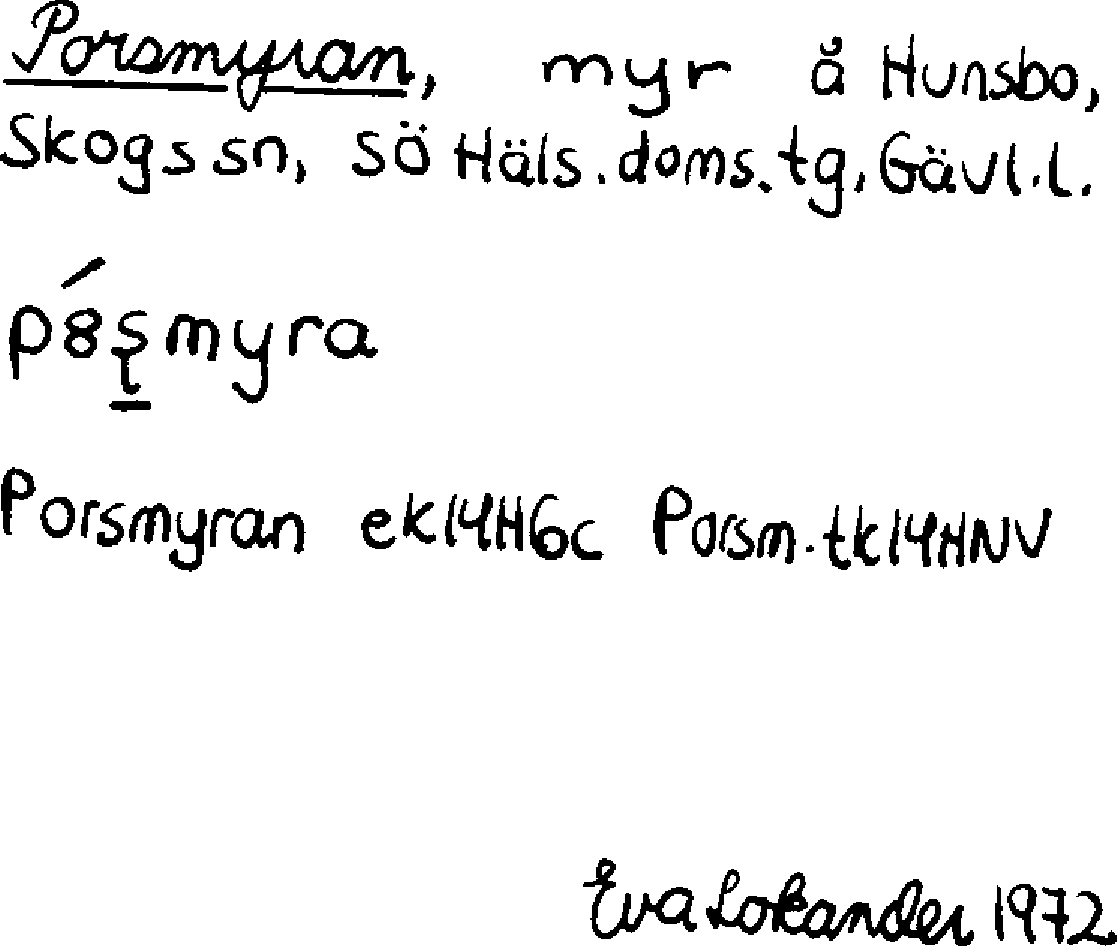 Porsmyran, myr å Hunsbo,
Skogs sn, SÖ Häls. doms. tg, Gävl. l.
Porsmyran ek14H6c Porsm. tk14HNV
Eva Lokander 1972.